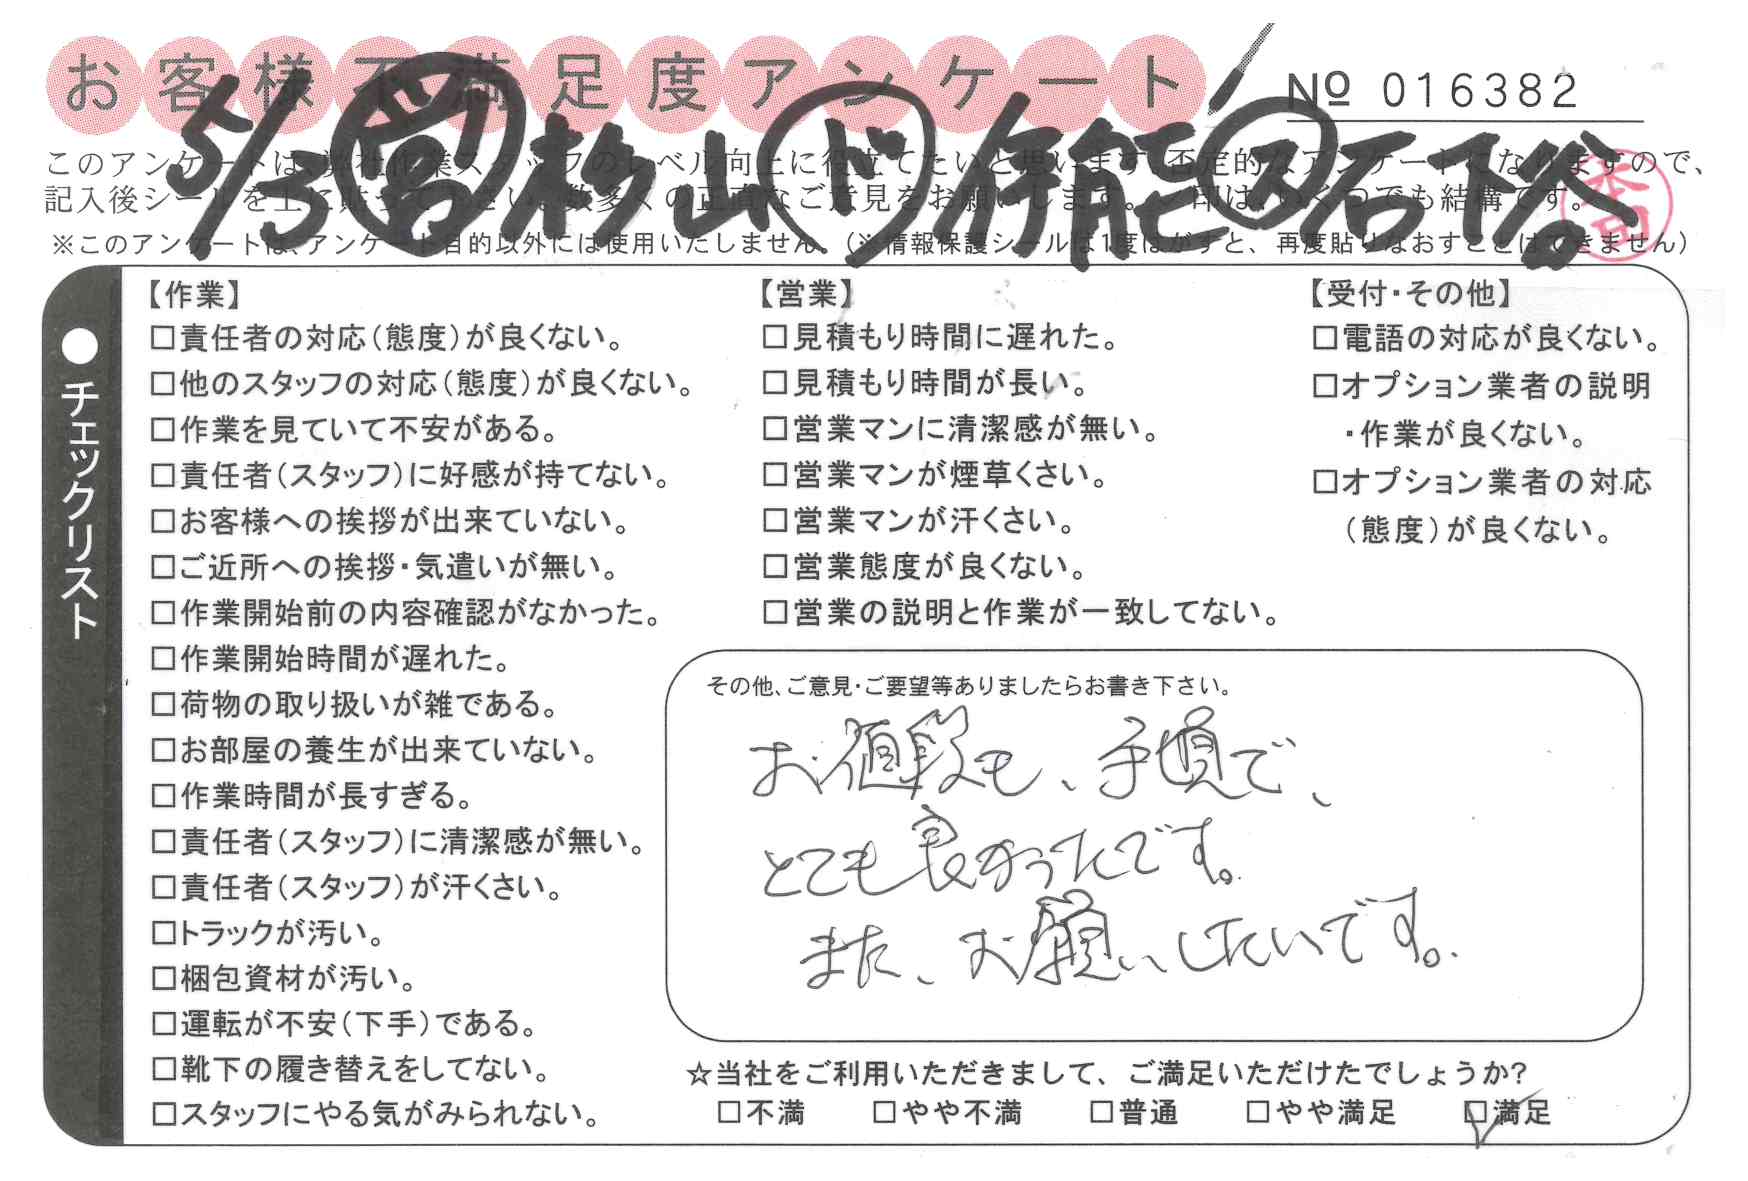 お客様不満足度アンケート
№ 016382
5/3 営 杉山 ド 伊能 ス 石下谷
このアンケートは、弊社作業スタッフのレベル向上に役立てたいと思います。否定的なアンケートになりますので、
記入後シールを上に貼って下さい。数多くの正直なご意見をお願いします。✓印は、いくつでも結構です。
※このアンケートは、アンケート目的以外には使用いたしません。(※情報保護シールは1度はがすと、再度貼りなおすことはできません)
●チェックリスト
【作業】
□責任者の対応(態度)が良くない。
□他のスタッフの対応(態度)が良くない。
□作業を見ていて不安がある。
□責任者(スタッフ)に好感が持てない。
□お客様への挨拶が出来ていない。
□ご近所への挨拶・気遣いが無い。
□作業開始前の内容確認がなかった。
□作業開始時間が遅れた。
□荷物の取り扱いが雑である。
□お部屋の養生が出来ていない。
□作業時間が長すぎる。
□責任者(スタッフ)に清潔感が無い。
□責任者(スタッフ)が汗くさい。
□トラックが汚い。
□梱包資材が汚い。
□運転が不安(下手)である。
□靴下の履き替えをしてない。
□スタッフにやる気がみられない。
【営業】
□見積もり時間に遅れた。
□見積もり時間が長い。
□営業マンに清潔感が無い。
□営業マンが煙草くさい。
□営業マンが汗くさい。
□営業態度が良くない。
□営業の説明と作業が一致してない。
【受付・その他】
□電話の対応が良くない。
□オプション業者の説明
・作業が良くない。
□オプション業者の対応
(態度)が良くない。
その他、ご意見・ご要望等ありましたらお書き下さい。
お値段も、手頃で、
とても良かったです。
また、お願いしたいです。
☆当社をご利用いただきまして、ご満足いただけたでしょうか?
□不満 □やや不満 □普通 □やや満足 ☑満足